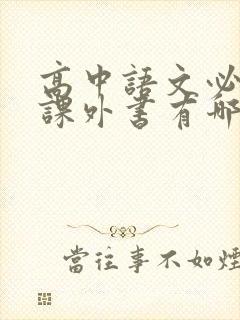 高中語文必
課外書有哪
當往事不如煙